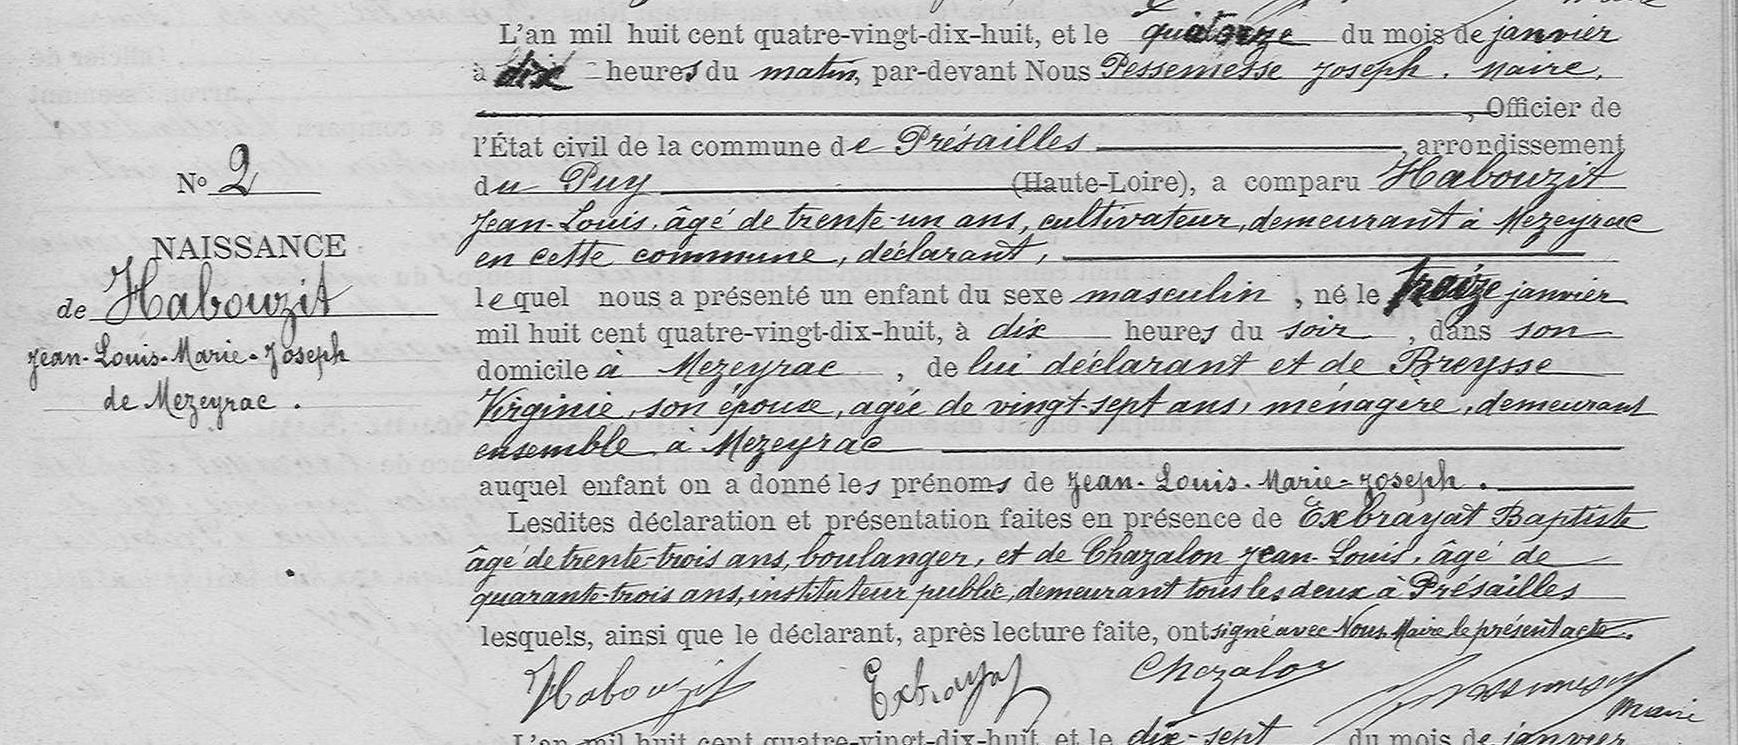 L'an mil huit cent quatre-vingt-dix-huit, et le quatorze du mois de janvier
à dix heures du matin, par-devant Nous Pessemesse Joseph. Maire,
, Officier de
l'État civil de la commune de Présailles, arrondissement
du Puy (Haute-Loire), a comparu Habouzit
Jean-Louis, âgé de trente-un ans, cultivateur, demeurant à Mezeyrac
en cette commune, déclarant,
lequel nous a présenté un enfant du sexe masculin, né le treize janvier
mil huit cent quatre-vingt-dix-huit, à dix heures du soir, dans son
domicile à Mezeyrac, de lui déclarant et de Breysse
Virginie, son épouse, agée de vingt-sept ans, ménagère, demeurant
ensemble à Mezeyrac
auquel enfant on a donné les prénoms de Jean-Louis-Marie-Joseph.
Lesdites déclaration et présentation faites en présence de Exbrayat Baptiste
âgé de trente-trois ans, boulanger, et de Chazalon Jean-Louis, âgé de
quarante-trois ans, instituteur public, demeurant tous les deux à Présailles
lesquels, ainsi que le déclarant, après lecture faite, ont signé avec Nous Maire le présent acte.
Habouzit Exbrayat Chazalon Pessemesse
maire
L'an mil huit cent quatre-vingt-dix-huit, et le dix-sept du mois de janvier
N° 2
NAISSANCE
de Habouzit
Jean-Louis-Marie-Joseph
de Mezeyrac.